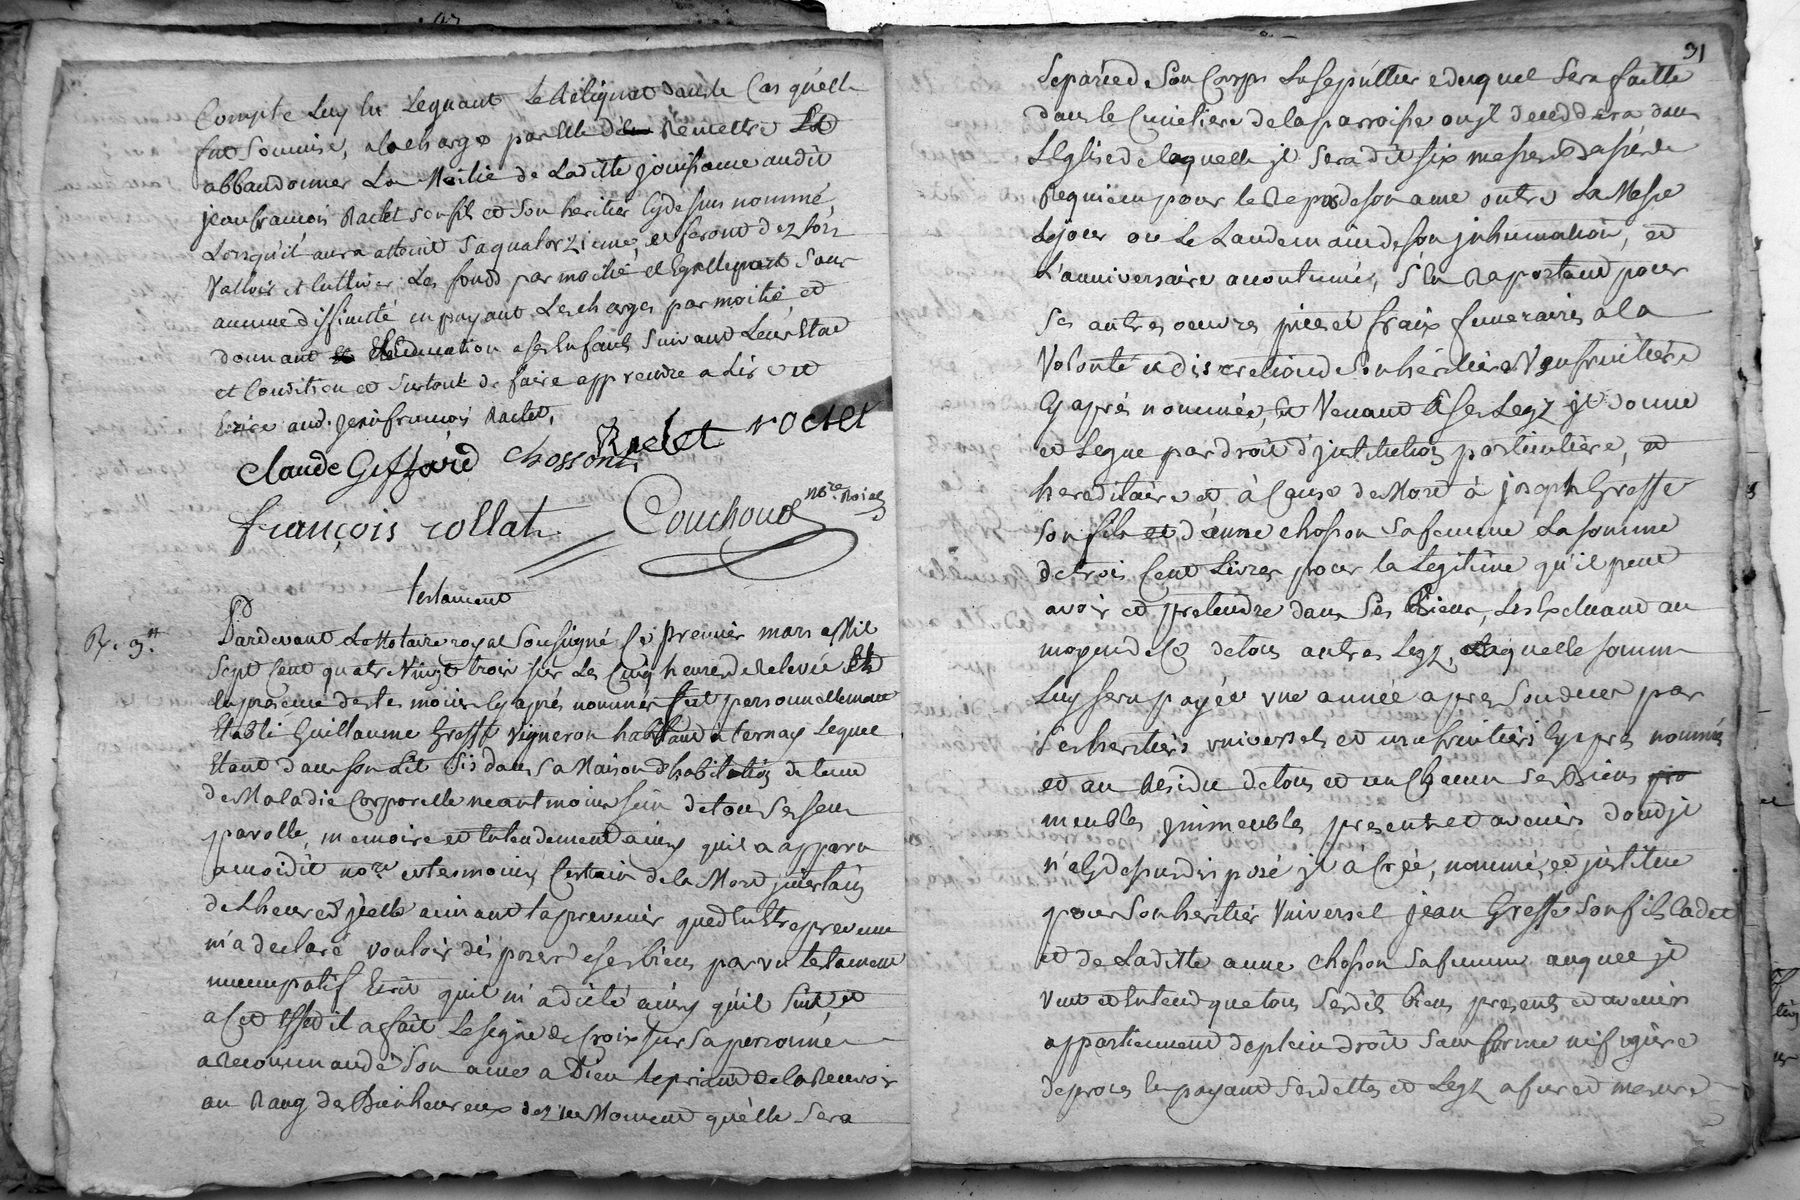 Compte luy en leguant le reliquat dans le Cas quelle
fut Soumise, a la charge par Elle de Remettre Et
abbandonner La Moitié de Laditte jouissance audit
jean francois Raclet son fils et Son heritier Cy dessus nommé,
Lorsqu'il aura atteint Sa quatorzieme, et feront dez lors
Valloir et Cultiver Les fonds par moitié et Egallement Sans
aucune difficulté en payant Les charges par moitié et
donnant Education a ses Enfants Suivant Leur Etat
et Condition et Surtout de faire apprendre a Lire et
Ecrire aud. jean francois Raclet,
Claude Geffard chossont Raclet roclet
françois rollat Couchoud nore. Roial
testament
Pardevant Le Notaire royal Soussigné Ce premier mars Mil
Sept Cent quatre Vingt trois sur Les Cinq heures de Relevée Et
En presence des temoins Cy après nommés fut personnellement
Etabli Guillaume Greffe Vigneron habitant a ternay Lequel
Etant dans son Lit Sis dans Sa Maison d'habitation detenu
de Maladie Corporelle neantmoins sein de tous Ses sens
parolle, memoire et Entendement ainsy quil a apparu
a moidit nore et temoins, Certain de la Mort, incertain
de L'heure d'jcelle aimant la prevenir que d'En Etre prevenu
m'a declaré vouloir disposer de ses biens par un testament
nuncupatif Ecrit quil m'a dicté ainsy qu'il Suit, et
a Cet Effet il a fait Le signe de Croix sur Sa personne
a Recommandé Son ame a Dieu Le priant de la Recevoir
au Rang des Bienheureux dez un Moment qu'elle Sera
31
Separée de Son Corps La Sepulture duquel Sera faitte
dans le Cimetiere de la parroisse ou jl deceddera dans
L'Eglise de laquelle jl Sera dit six messes Basses de
Requiem pour le Repos de son ame outre La Messe
Le jour ou Le Landemain de son jnhumation, et
L'anniversaire accoutumée, S'En Raportant pour
Ses autres oeuvres pies et fraix funeraires a la
Volonté et discretion de Son héritier et Usufruitiere
Cy après nommée, Et Venant à Ses Legz jl donne
et Legue par droit d'jnstitution particuliere, et
hereditaire et à Cause de Mort à joseph Greffe
Son fils et d'anne chosson Sa femme La somme
de trois Cent Livres pour la Legitime qu'il peut
avoir et pretendre dans Ses Biens, Les Excluant au
moyen de Ce de tous autres Legz, Laquelle somme
Luy sera payée une année apres Son deces par
Ses heritiers universels et usufruitiers Cy après nommés
et au Residu de tous et un Chacun Ses Biens pro
meubles jmmeubles presents et avenirs dont jl
n'a Cy dessus disposé jl à Créé, nommé, et jnstitue
pour Son heritier Universel jean Greffe Son fils Cadet
et de Laditte anne chosson Sa femme auquel jl
Veut et Entend que tous Sesdits biens presents et avenirs
appartiennent de plein droit Sans forme ni figure
de proces En payant Ses dettes et Legz a fur et mesure